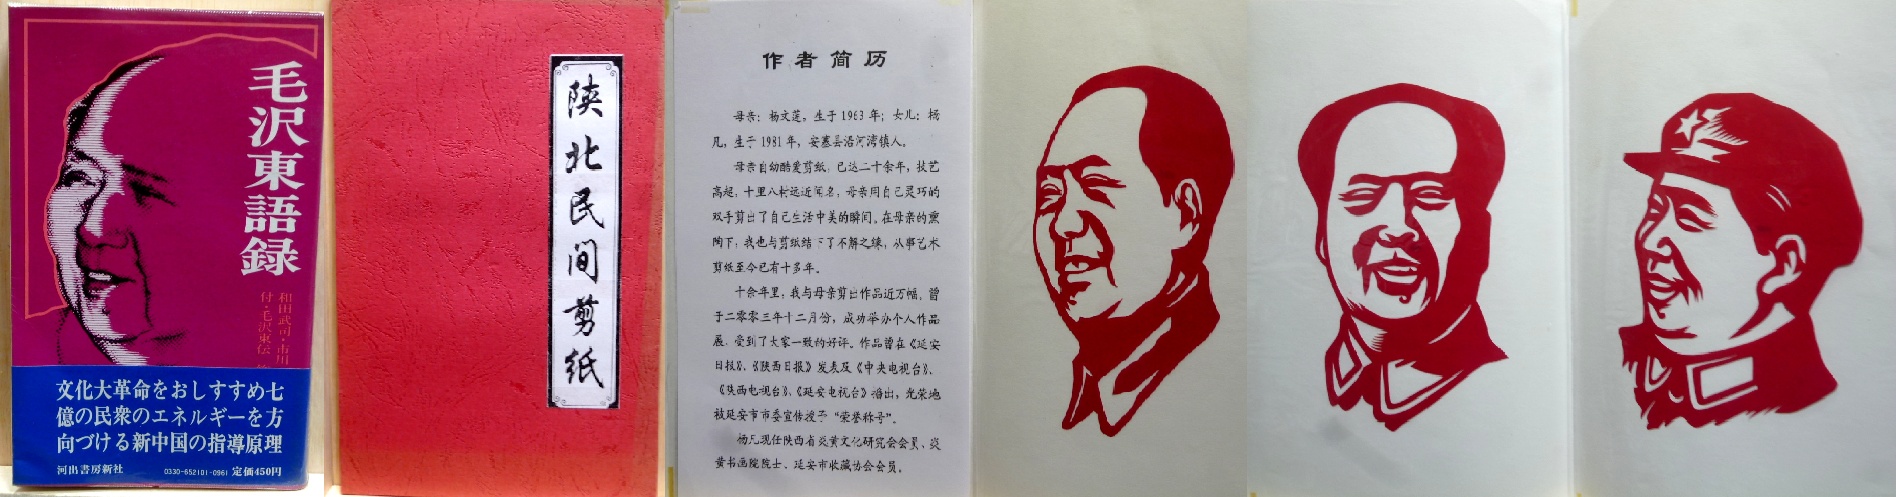 毛沢東語録
和田武司・市川
付・毛沢東伝
文化大革命をおしすすめ七
億の民衆のエネルギーを方
向づける新中国の指導原理
河出書房新社
0330-652101-0961 定価450円
陕北民间剪纸
作者简历
母亲：杨文莲，生于1963年；女儿：杨
凡，生于1981年，安塞县沿河湾镇人。
母亲自幼酷爱剪纸，已达二十余年，技艺
高超，十里八村远近闻名，母亲用自己灵巧的
双手剪出了自己生活中美的瞬间。在母亲的熏
陶下，我也与剪纸结下了不解之缘，从事艺术
剪纸至今已有十多年。
十余年里，我与母亲剪出作品近万幅，曾
于二零零三年十二月份，成功举办个人作品
展，受到了大家一致的好评。作品曾在《延安
日报》、《陕西日报》发表及《中央电视台》、
《陕西电视台》、《延安电视台》播出，光荣地
被延安市市委宣传授予“荣誉称号”。
杨凡现任陕西省炎黄文化研究会会员、炎
黄书画院院士、延安市收藏协会会员。